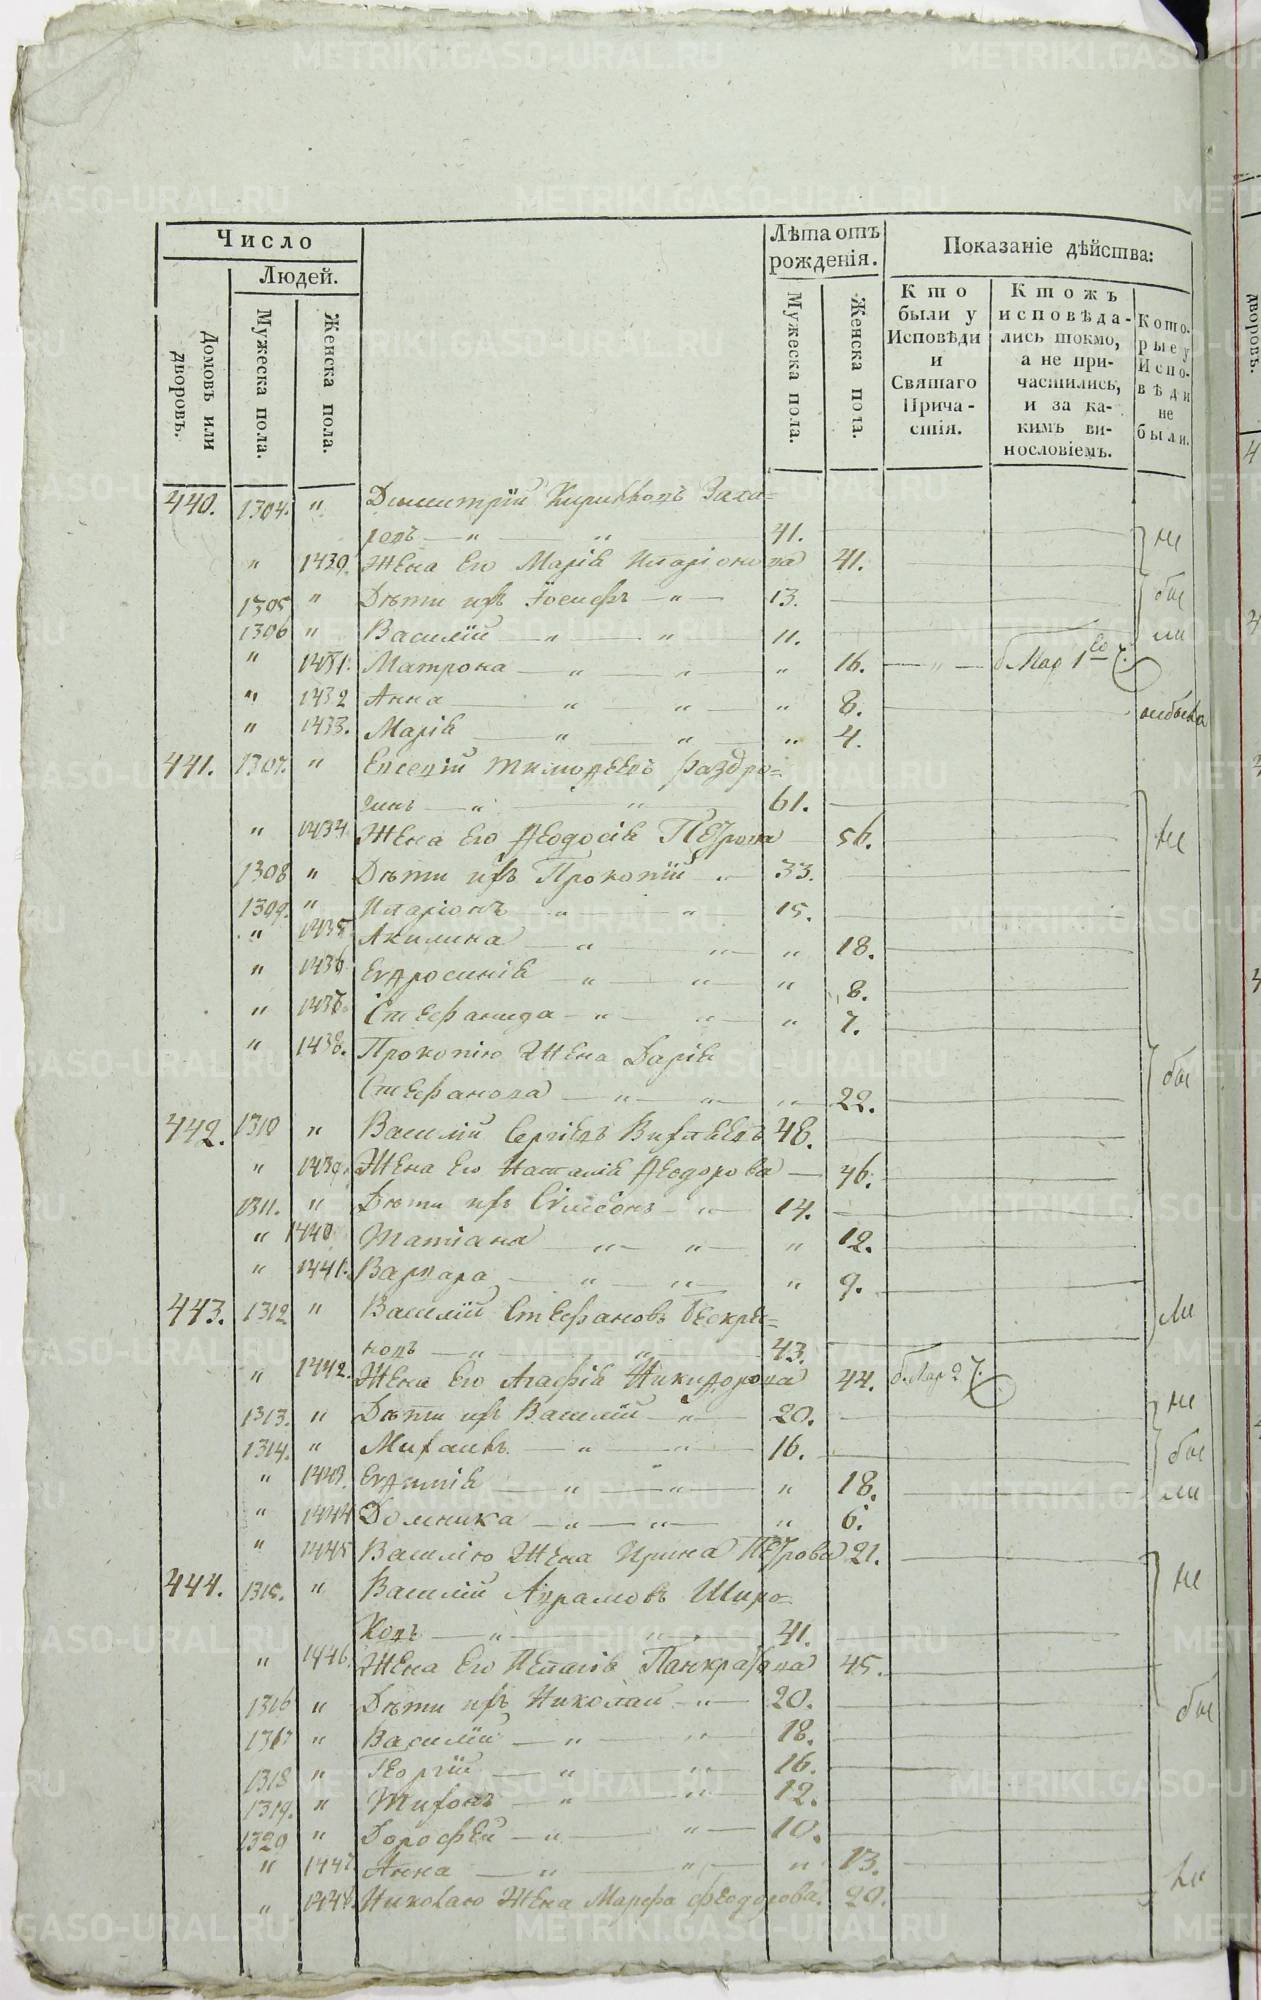 Число
Людей.
Домовъ или дворовъ.
Мужеска пола.
Женска пола.
Лѣта отъ рожденія.
Мужеска пола.
Женска пола.
Показаніе дѣйства:
Кто были у Исповѣди и Святаго Прича-стія.
Ктожъ исповѣда-лись токмо, а не при-частились, и за ка-кимъ ви-нословіемъ.
Кото-рые у Испо-вѣди не были.
440. 1304. " Димитрій Кириловъ Заха=
ровъ — " — " — 41. не
" 1430. Жена Его Марія Иларіонова 41.
1305 " Дѣти ихъ Іосифъ — " — 13. бы
1306 " Василій — " — " 11. ли
" 1431. Матрона — " — " — " 16. — " —
" 1432 Анна — " — " — " 8.
" 1433. Марія — " — " — " 4.
441. 1307. " Евсевій Тимофеевъ Раздро=
гинъ — " — " — 61.
" 1434. Жена Его Ѳеодосія Петрова 56. не
1308 " Дѣти ихъ Прокопій " — 33.
1309. " Иларіонъ " — " 15.
" 1435 Акилина — " — " — " 18.
" 1436 Евдросинія — " — " — " 8.
" 1437. Стефанида — " — " — " 7.
" 1438. Прокопію Жена Дарія
Стефанова — " — " — " 22. бы
442. 1310 " Василій Сергіевъ 48.
" 1439. Жена Его Наталія Ѳеодорова — 46.
1311. " Дѣти ихъ Сѵмеонъ — " — 14.
" 1440 Татіана — " — " — " 12.
" 1441. Варвара — " — " — " 9.
443. 1312 " Василій Стефановъ Бескре=
новъ — " — " 43. ли
" 1442. Жена Его Агафія Никифорова 44.
1313. " Дѣти ихъ Василій — " — 20. не
1314. " Михаилъ — " — " — 16. бы
" 1443. Евдимія — " — " — " 18. ли
" 1444 Домника — " — " — " 6.
" 1445 Василію Жена Ирина Петрова 21.
444. 1315. " Василій Аврамовъ Широ= не
ковъ — " — " — 41.
" 1446. Жена Его Пелагія Панкратова 45.
1316 " Дѣти ихъ Николай — " — 20. бы
1317 " Василій — " — " — 18.
1318 " Георгій — " — " — 16.
1319. " Тихонъ — " — " — 12.
1320 " Дорофей — " — " — 10.
" 1447. Анна — " — " — " 13. ли
" 1448. Николаю Жена Марфа Феодорова. 20.
METRIKI.GASO-URAL.RU